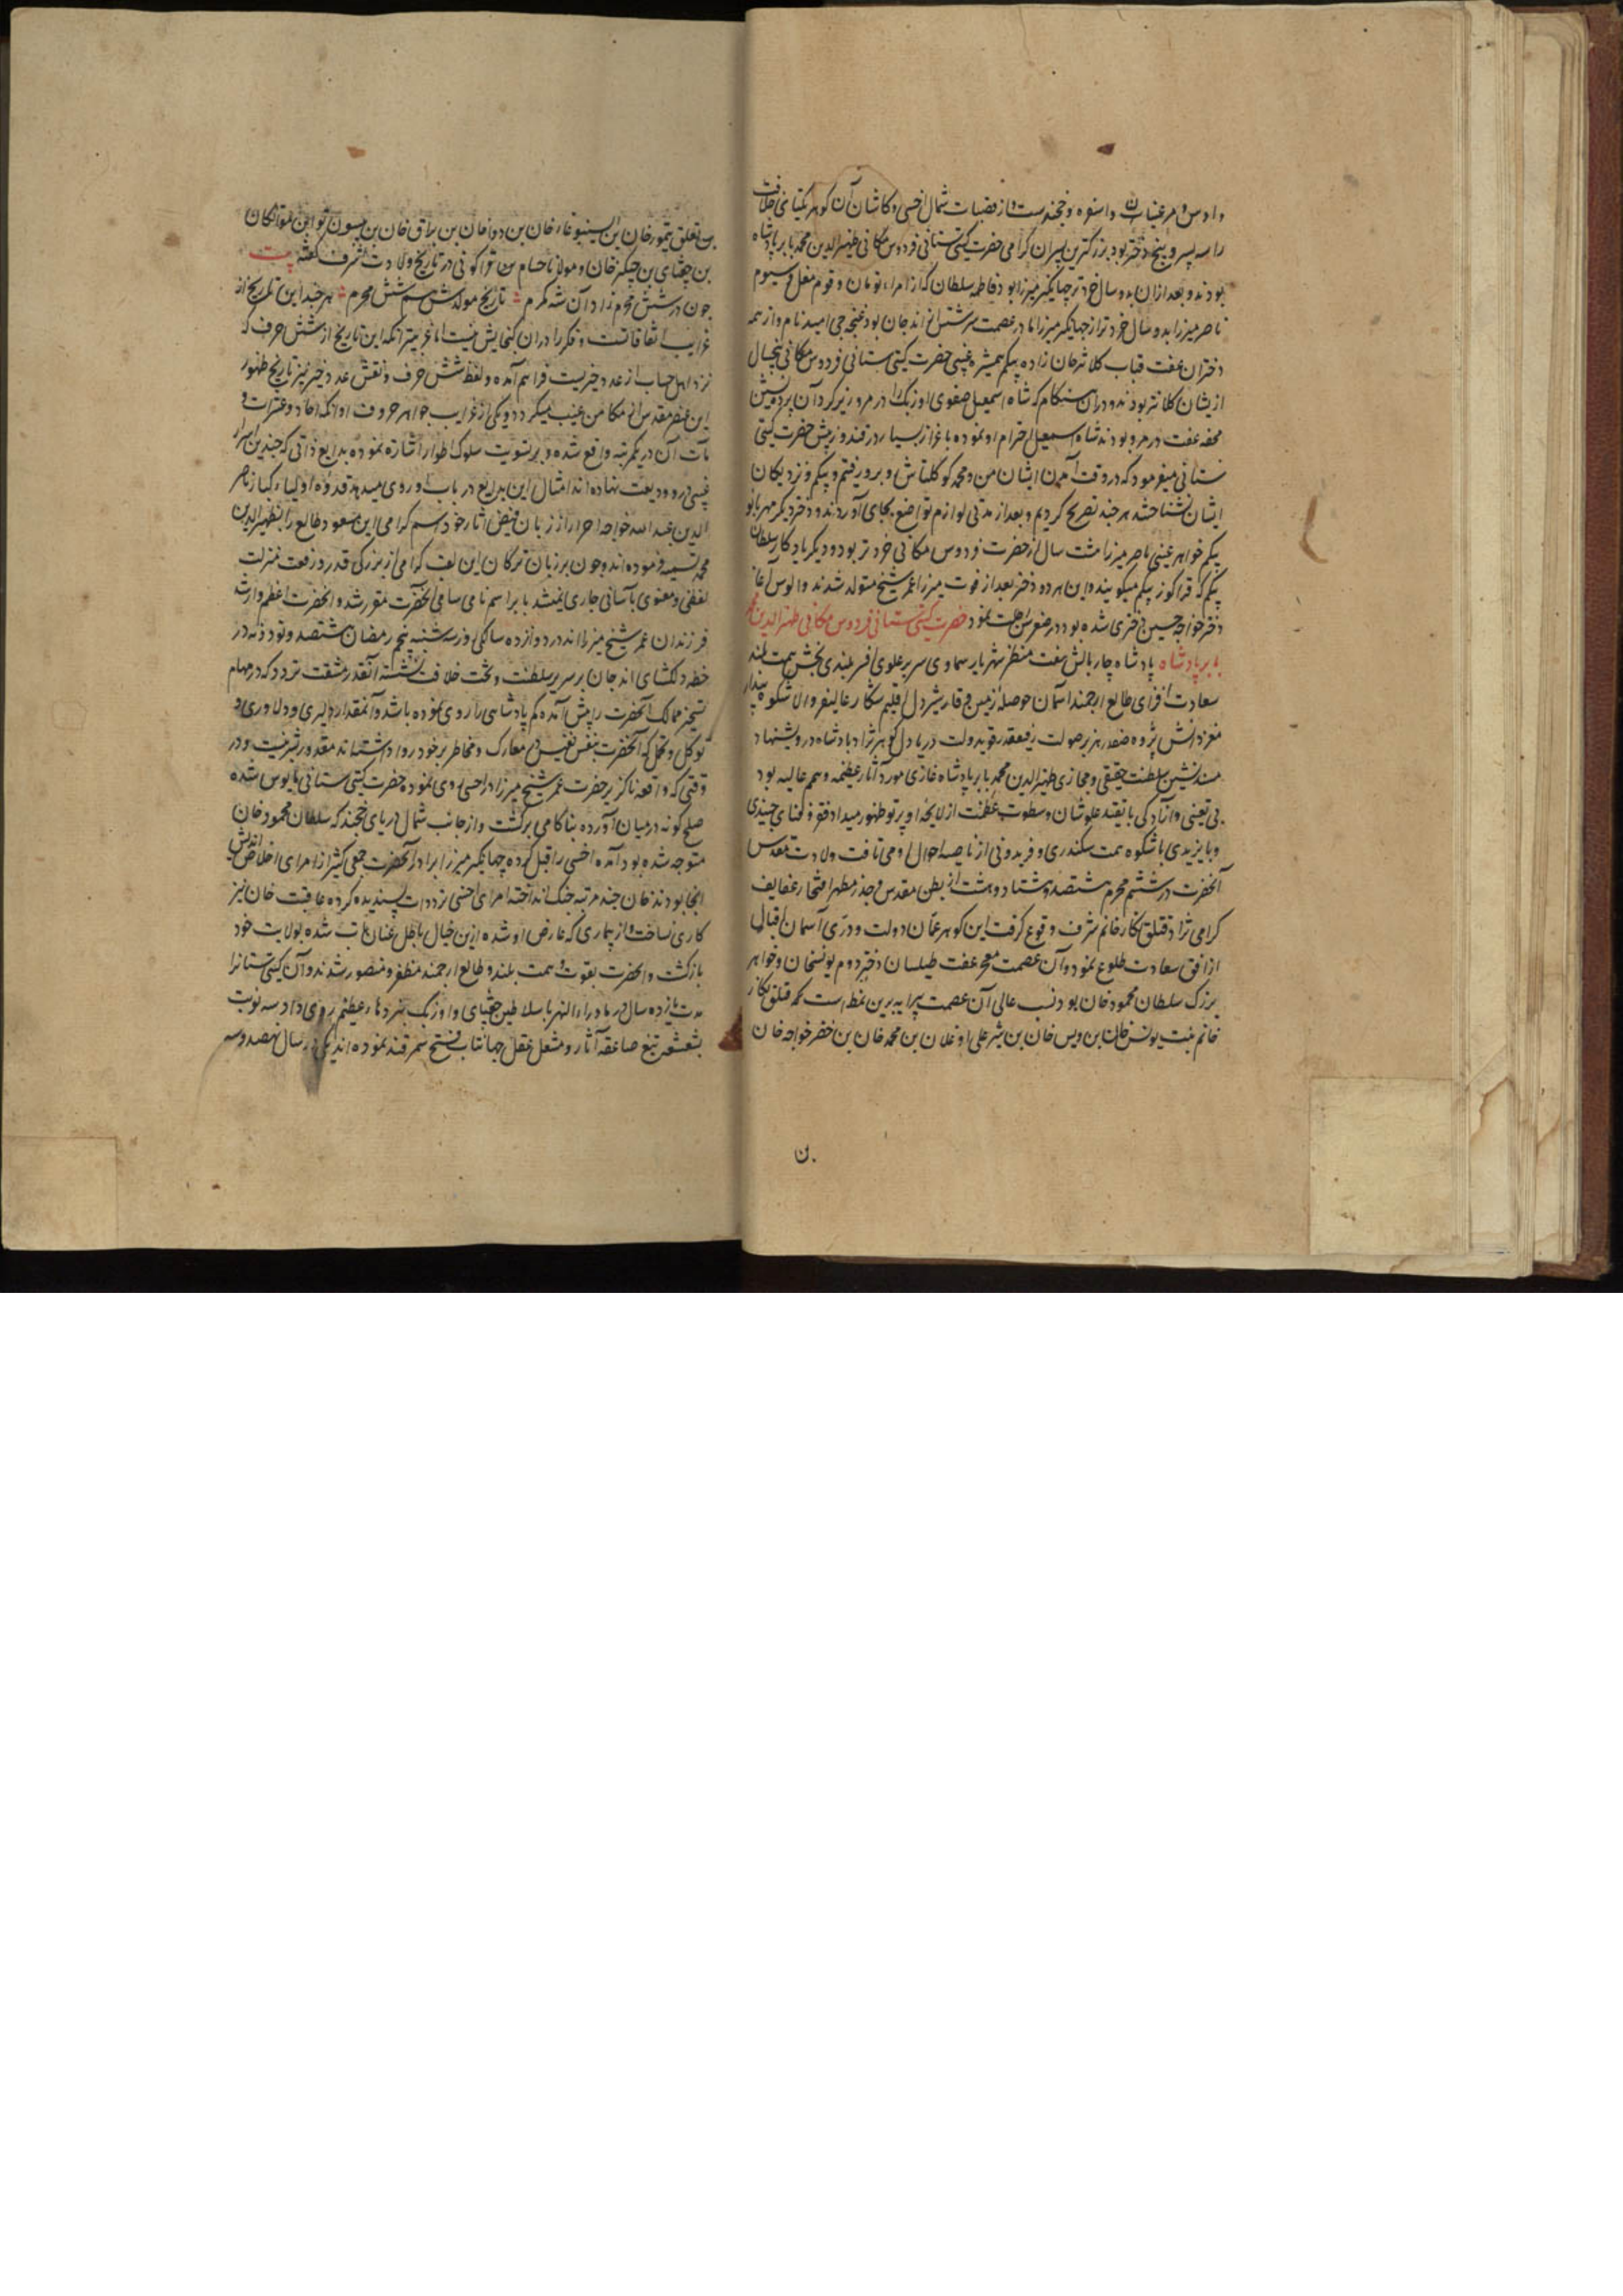 و اوس و مرغینان و اسفره و خجند ست و از قصبات شمال اخسی و کاشان آن کوهر یکتای خلافت
را سه پسر و پنج دختر بود بزرکترین پسران کرامی حضرت کیتی ستانی فردوس مکانی ظهیرالدین محمد بابر پادشاه
بودند و بعد ازان بدو سال خرد تر جهانکیر میرزا بود و فاطمه سلطان که از امراء تومان و قوم مغل سیوم
ناصر میرزا بدو سال خرد تر از جهانکیر میرزا مادر عصمت سرشتش از اندجان بود غنجه جی امید نام و از همه
دختران عفت قباب کلانتر خان زاده بیکم همشیره عینی حضرت کیتی ستانی فردوس مکانی پنجسال
ازیشان کلانتر بودند و دران هنکام که شاه اسمعیل صفوی اوزبک را در مرو زیر کرد آن پرده نشین
محفه عفت در مرو بودند شاه اسمعیل احترام او نموده باعزاز بسیار در قندوز پیش حضرت کیتی
ستانی میفرمود که در وقت آمدن ایشان من و محمد کوکلتاش و برو رفتیم و بیکم و نزدیکان
ایشان نشناختند هر چند تصریح کردیم و بعد از مدتی لوازم تواضع بجای آوردند و دختر دیکر مهربانو
بیکم خواهر عینی ناصر میرزا هشت سال از حضرت فردوس مکانی خرد تر بود و دیکر یادکار سلطان
بیکم که قراکوز بیکم میکویند و این هر دو دختر بعد از فوت میرزا عمر شیخ متولد شدند و الوس آغا
دختر خواجه حسین دختری شده بود در صغر سن رحلت نمود حضرت کیتی ستانی فردوس مکانی ظهیرالدین محمد
بابر پادشاه پادشاه چار بالش هفت منظر شهریار سماوی سریر علوی افسر بلندی بخش همت بلند
سعادت افزای طالع ارجمند آسمان حوصله زمین وقار شیردل اقلیم شکار عالیقدر والا شکوه بیدار
مغز دانش پژوه صفدر هزبر صولت رفیعقدر قوید ولت دریا دل کوهر نژاد پادشاه درویشنهاد
مسند نشین سلطنت حقیقی و مجازی ظهیرالدین محمد بابر پادشاه غازی مورد آثار عظیمه و همم عالیه بود
بی تعینی و آزادکی با بقید علو شان و سطوت عظمت از لایحه او پرتو ظهور میداد فقر و فنای جنیدی
و بایزیدی با شکوه همت سکندری و فریدونی از ناصیه احوال او می تافت ولادت مقدس
آنحضرت در ششم محرم هشتصد و هشتاد و هشت از بطن مقدس و جذر مطهر افتخار عفایف
کرامی نژاد قتلق نکار خانم شرف وقوع کرفت این کوهر عمان دولت و دری آسمان اقبال
از افق سعادت طلوع نمود و آن عصمت معجر عفت طیلسان دختر دوم یونسخان و خواهر
بزرک سلطان محمود خان بود نسب عالی آن عصمت پیرایه برین نمط است که قتلق نکار
خانم بنت یونس خان بن ویس خان بن شیر علی اوغلان بن محمد خان بن خضر خواجه خان
بن تغلق تیمور خان بن ایسنبوغا خان بن دوا خان بن براق خان بن یسون توا بن مواتکان
بن چغتای بن چنکیز خان و مولانا حسام بن قراکوئی در تاریخ ولادت اشرف کفته بیت
چون در شش محرم زاد آن شه مکرم تاریخ مولدش هم شش محرم هر چند این تاریخ از
غرایب اتفاقاتست و فکر را دران کنجایش نیست اما غریبتر آنکه این تاریخ از شش حرف که
نزد اهل حساب از عدد خیریست فراهم آمده و لفظ شش حرف و نقش عدد خیر نیز تاریخ ظهور
این عنصر مقدس از مکامن غیب میکردد و یکی از غرایب جواهر حروف او آنکه احاد و عشرات و
مآت آن در یک مرتبه واقع شده و بر تسویت سلوک اطوار اشاره نموده بدایع ذاتی که چندین اسرار
غیبی درو ودیعت نهاده اند امثال این بدایع در باب او روی میدهد قدوه اولیاء کبار ناصر
الدین عبدالله خواجه احرار از زبان فیض آثار خود اسم کرامی این مسعود طالع را بظهیرالدین
محمد تسمیه فرموده اند و چون بر زبان ترکان این لقب کرامی از بزرکی قدر و رفعت منزلت
لفظی و معنوی بآسانی جاری نمیشد بابر اسم نامی سامی آنحضرت مقرر شد و آنحضرت اعظم و ارشد
فرزندان عمر شیخ میرزا اند در دوازده سالکی روز سه شنبه پنجم رمضان هشتصد و نود و نه در
خطه دلکشای اندجان بر سریر سلطنت و تخت خلافت نشسته آنقدر مشقت تردد که در مهام
تسخیر ممالک آنحضرت را پیش آمده کم پادشاهی را روی نموده باشد و آنمقدار دلیری و دلاوری و
توکل و تحمل که آنحضرت بنفس نفیس در معارک و مخاطر بر خود روا داشته اند مقدور بشر نیست و در
وقتی که واقعه ناکزیر حضرت عمر شیخ میرزا در اخسی روی نموده حضرت کیتی ستانی مایوس شده
صلح کونه درمیان آورده بناکامی برکشت و از جانب شمال دریای خجند که سلطان محمود خان
متوجه شده بود آمده اخسی را قبل کرده جهانکیر میرزا برادر آنحضرت جمعی کثیر از امرای اخلاص اندیش
آنجا بودند خان چند مرتبه جنک انداخته امرای اخسی ترددات پسندیده کرده عاقبت خان نیز
کاری نساخت و از بیماری که عارض او شده ازین خیال باطل عنان تاب شده بولایت خود
بازکشت و آنحضرت بقوت همت بلند و طالع ارجمند مظفر و منصور شدند و آن کیتی ستانرا
مدت یازده سال در ماوراءالنهر با سلاطین چغتای و اوزبک نبردهاء عظیم روی داد سه نوبت
بشعشعه تیغ صاعقه آثار و مشعل عقل جهانتاب فتح سمرقند نموده اند یکی در سال نهصد و سه